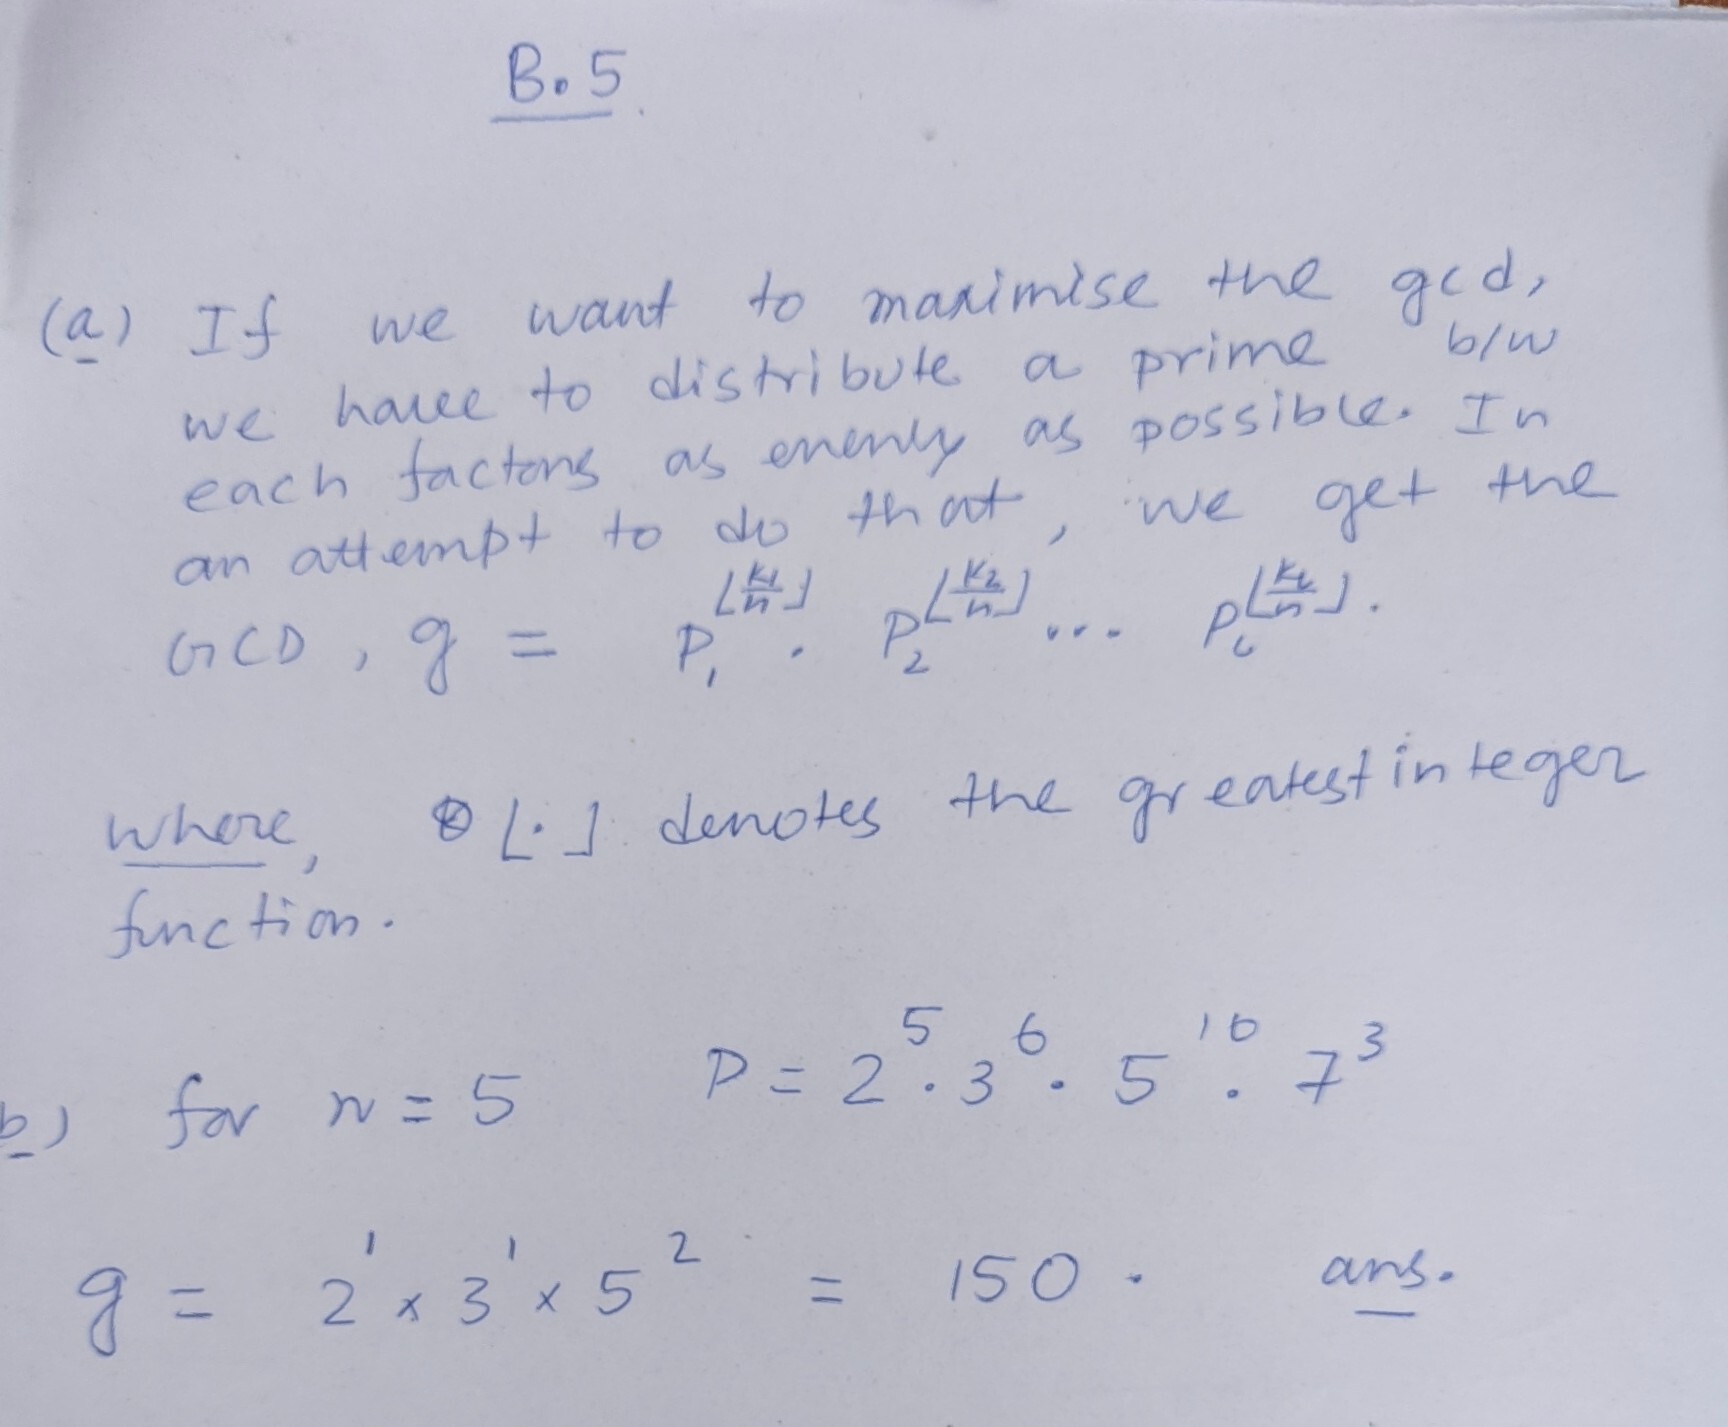 B.5
(a) If we want to maximise the gcd,
we have to distribute a prime b/w
each factors as evenly as possible. In
an attempt to do that, we get the
GCD, g = P₁^⌊k₁/n⌋ . P₂^⌊k₂/n⌋ ... P_L^⌊k_L/n⌋.
where, ⌊.⌋ denotes the greatest integer
function.
b) for n = 5 P = 2^5 . 3^6 . 5^10 . 7^3
g = 2^1 × 3^1 × 5^2 = 150 . ans.